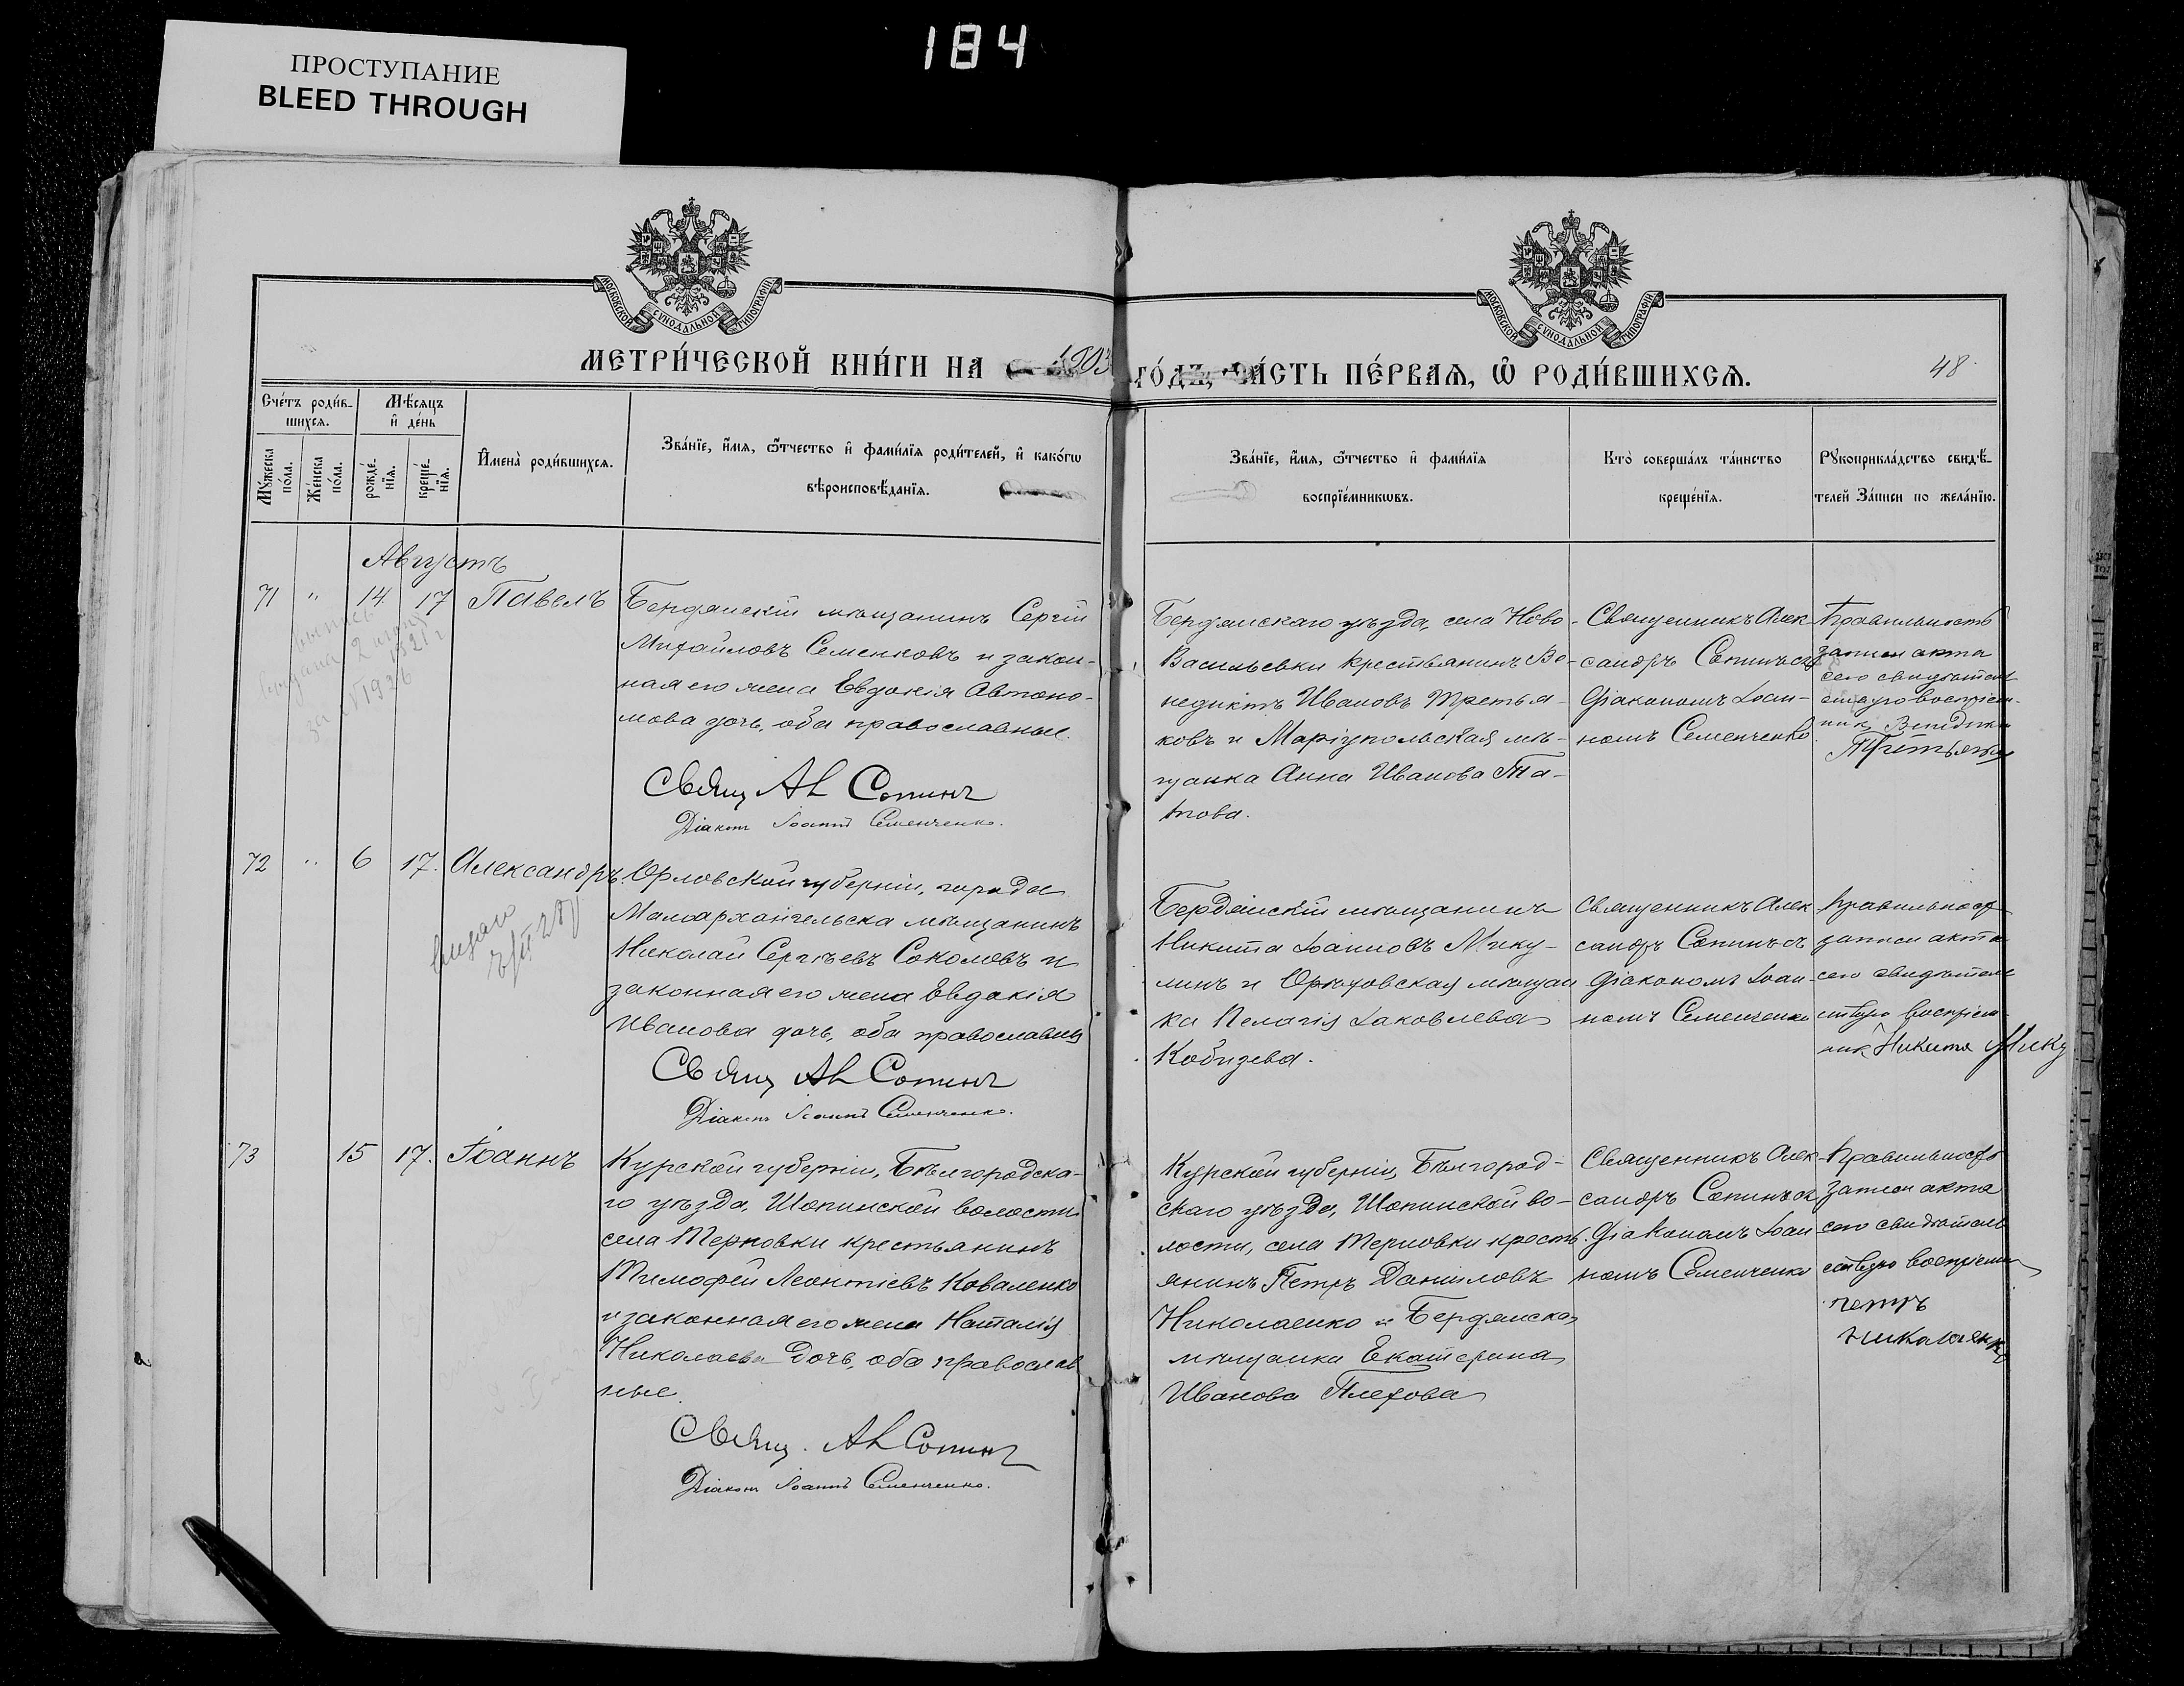 184
ПРОСТУПАНИЕ
BLEED THROUGH
МОСКОВСКОЙ СѴНОДАЛЬНОЙ ТИПОГРАФІИ
МОСКОВСКОЙ СѴНОДАЛЬНОЙ ТИПОГРАФІИ
МЕТРИ́ЧЕСКОЙ КНИ́ГИ НА 1903
ГО́ДЪ, ЧА́СТЬ ПЕ́РВАѦ, Ѿ РОДИ́ВШИХСѦ.
48
Сче́тъ роди́в-
шихсѧ.
Мꙋжеска по́ла.
Же́нска по́ла.
Мѣ́сѧцъ
и҆ де́нь
рожде́нїѧ.
креще́нїѧ.
И҆мена̀ роди́вшихсѧ.
Зва́нїе, и҆́мѧ, ѻ҆́тчество и҆ фами́лїѧ роди́телей, и҆ како́гѡ
вѣроисповѣ́данїѧ.
Зва́нїе, и҆́мѧ, ѻ҆́тчество и҆ фами́лїѧ
воспрїе́мникѡвъ.
Кто̀ соверша́лъ та́инство
креще́нїѧ.
Рꙋкоприкла́дство свидѣ́-
телей за́писи по жела́нїю.
Августъ
71 " 14 17 Павелъ
Бердянскій мѣщанинъ Сергій
Михайловъ Семенковъ и закон-
ная его жена Евдокія Автоно-
мова дочь, оба православные.
Свящ Ал Сопинъ
Діаконъ Іоаннъ Семенченко.
Бердянскаго уѣзда, села Ново-
Васильевки крестьянинъ Ве-
недиктъ Ивановъ Третья-
ковъ и Маріупольская мѣ-
щанка Анна Иванова Та-
това.
Священникъ Алек-
сандръ Сопинъ съ
Діакономъ Іоан-
номъ Семенченко
Правильность
записи акта
сего свидѣтель
ствую воспріем-
никъ
72 " 6 17. Александръ.
Орловской губерніи, города
Малоархангельска мѣщанинъ
Николай Сергѣевъ Соколовъ и
законная его жена Евдокія
Иванова дочь, оба православны
Свящ Ал Сопинъ
Діаконъ Іоаннъ Семенченко.
Бердянскій мѣщанинъ
Никита Іоанновъ Мику-
линъ и Орѣховская мѣщан
ка Пелагія Іаковлева
Кобизева.
Священникъ Алек
сандръ Сопинъ съ
Діакономъ Іоан-
номъ Семенченко
Правильность
записи акта
сего свидѣтель
ствую воспріем-
никъ Никита Мику
73 15 17. Іоаннъ
Курской губерніи, Бѣлгородска-
го уѣзда, Шопинской волости
села Терновки крестьянинъ
Тимофей Леонтіевъ Коваленко
и законная его жена Наталія
Николаева дочь, оба православ
ные.
Свящ. Ал Сопинъ
Діаконъ Іоаннъ Семенченко.
Курской губерніи, Бѣлгород-
скаго уѣзда, Шопинской во-
лости, села Терновки кресть-
янинъ Петръ Даніиловъ
Николаенко и Бердянская
мѣщанка Екатерина
Иванова Плехова
Священникъ Алек-
сандръ Сопинъ съ
Діакономъ Іоан
номъ Семенченко
Правильность
записи акта
сего свидѣтель
ствую воспріемн
петръ
николаенко